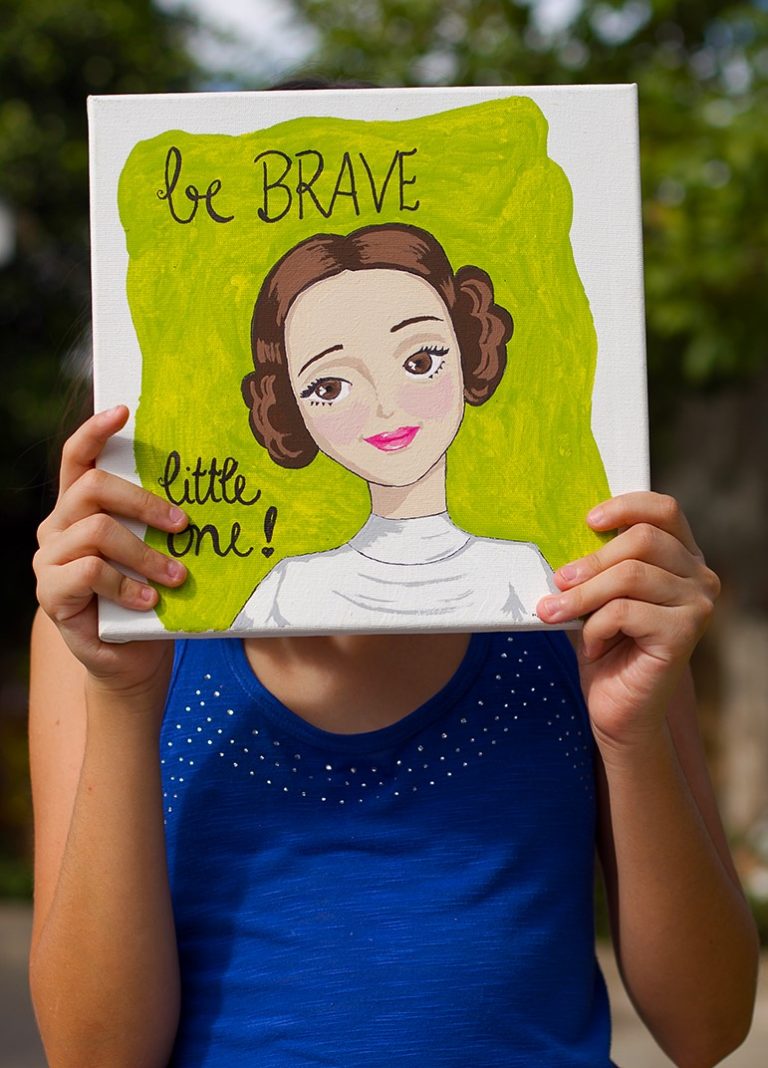 be BRAVE
little
one!